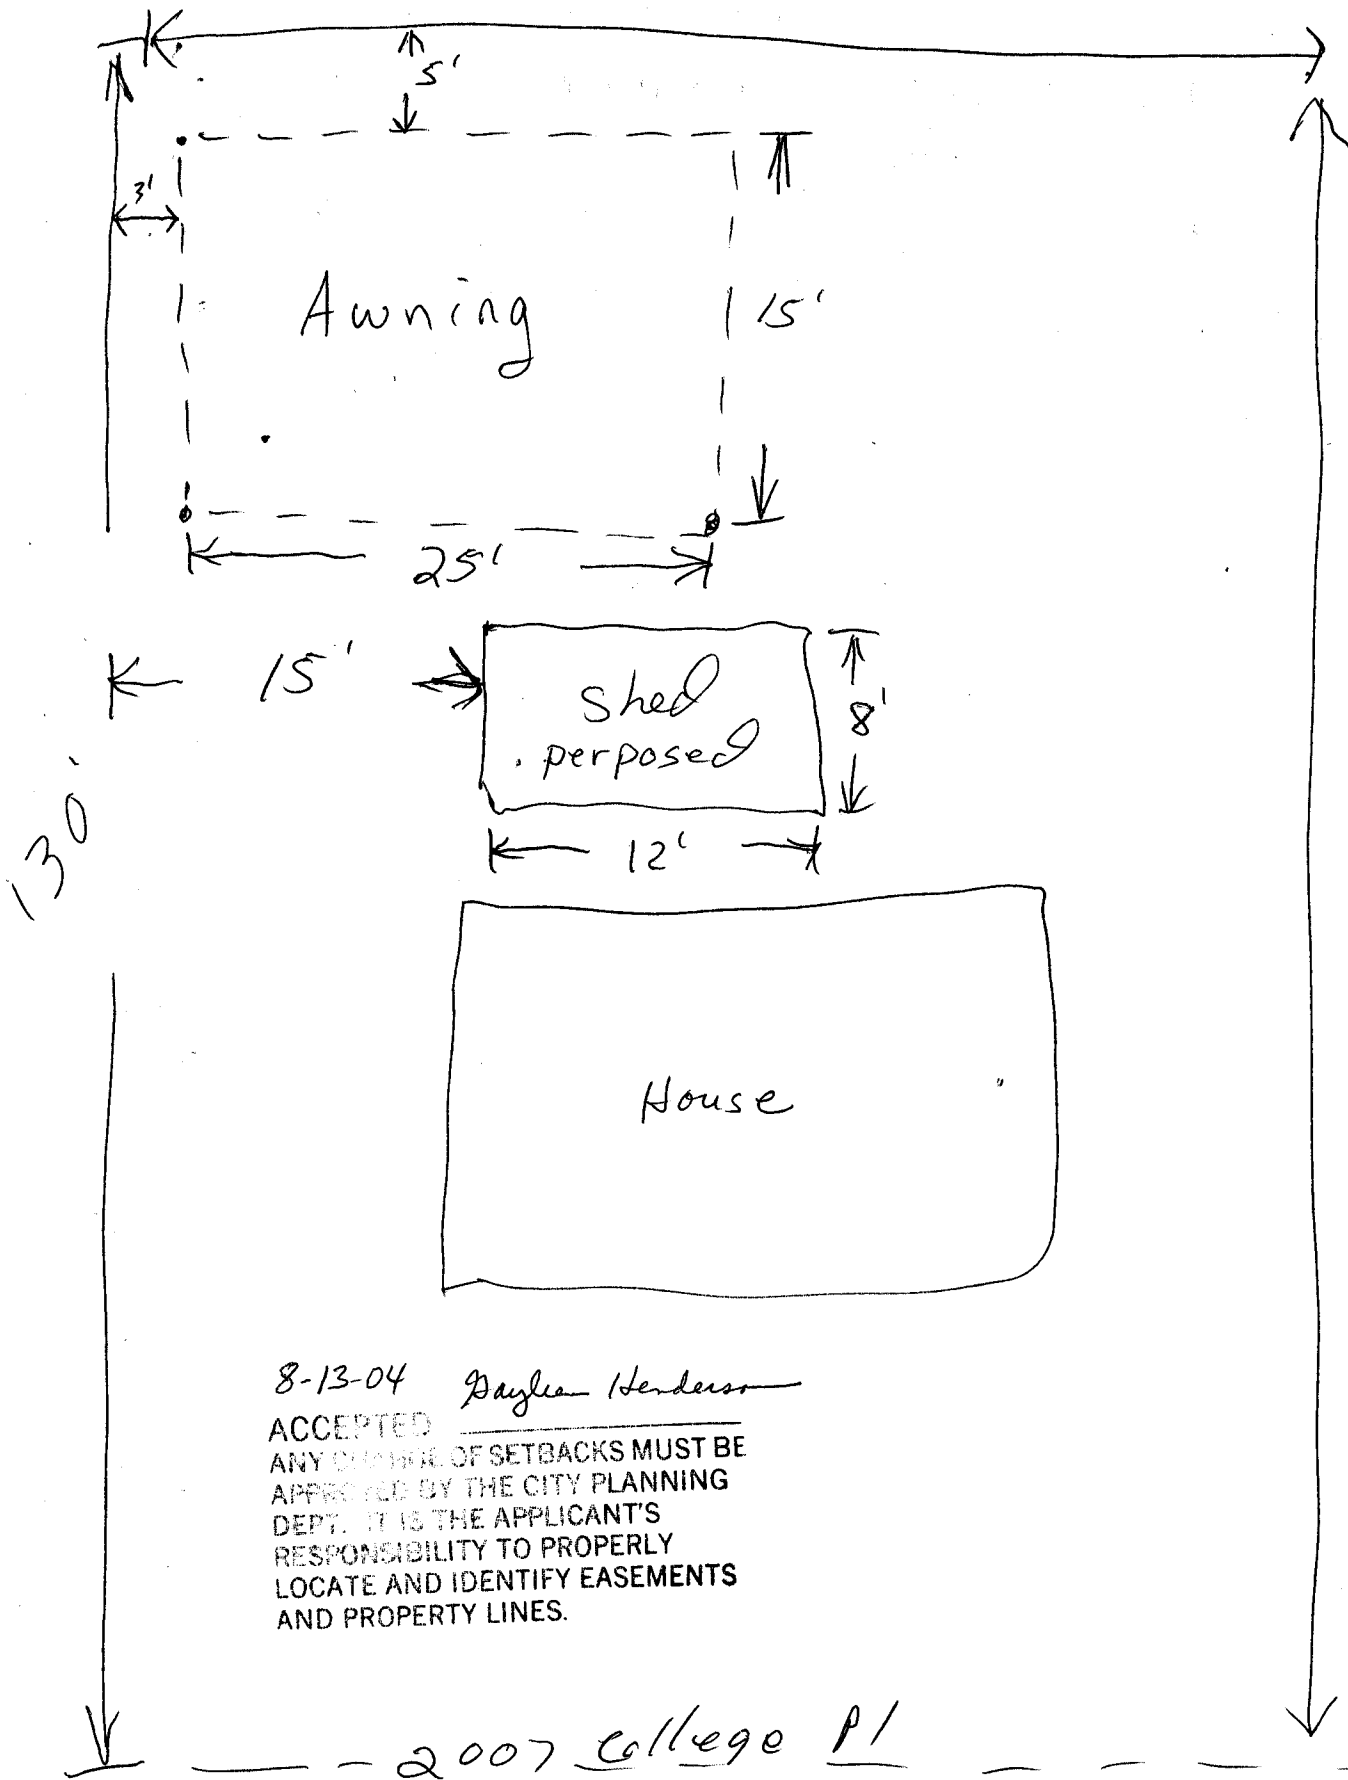 5'
3'
Awning
15'
25'
15'
Shed
perposed
8'
12'
130'
House
8-13-04 Gaylen Henderson
ACCEPTED
ANY CHANGE OF SETBACKS MUST BE
APPROVED BY THE CITY PLANNING
DEPT. IT IS THE APPLICANT'S
RESPONSIBILITY TO PROPERLY
LOCATE AND IDENTIFY EASEMENTS
AND PROPERTY LINES.
2007 College Pl